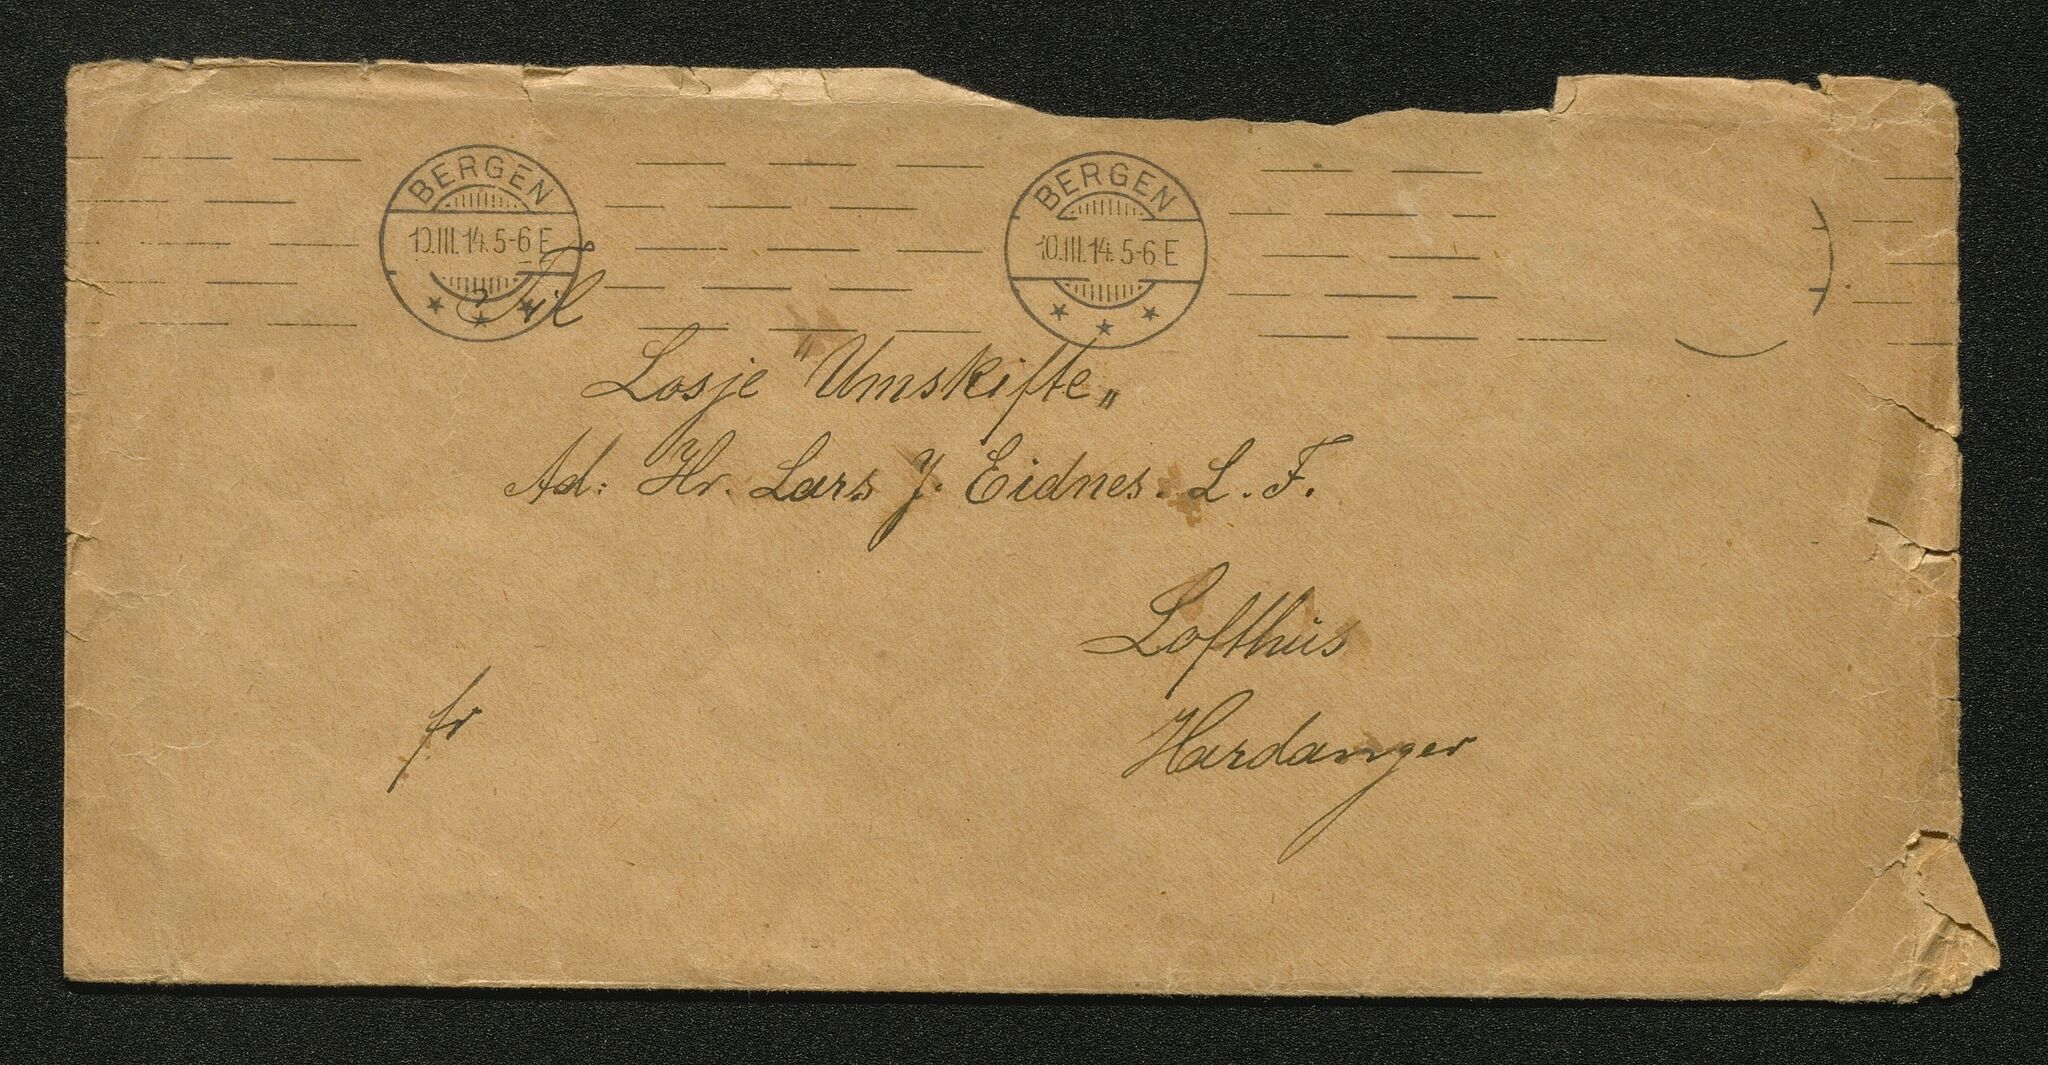 BERGEN
10.III.14. 5-6 E
BERGEN
10.III.14. 5-6 E
Til
Losje "Umskifte„
Ad: Hr. Lars J. Eidnes. L. F.
Lofthus
Hardanger
fr